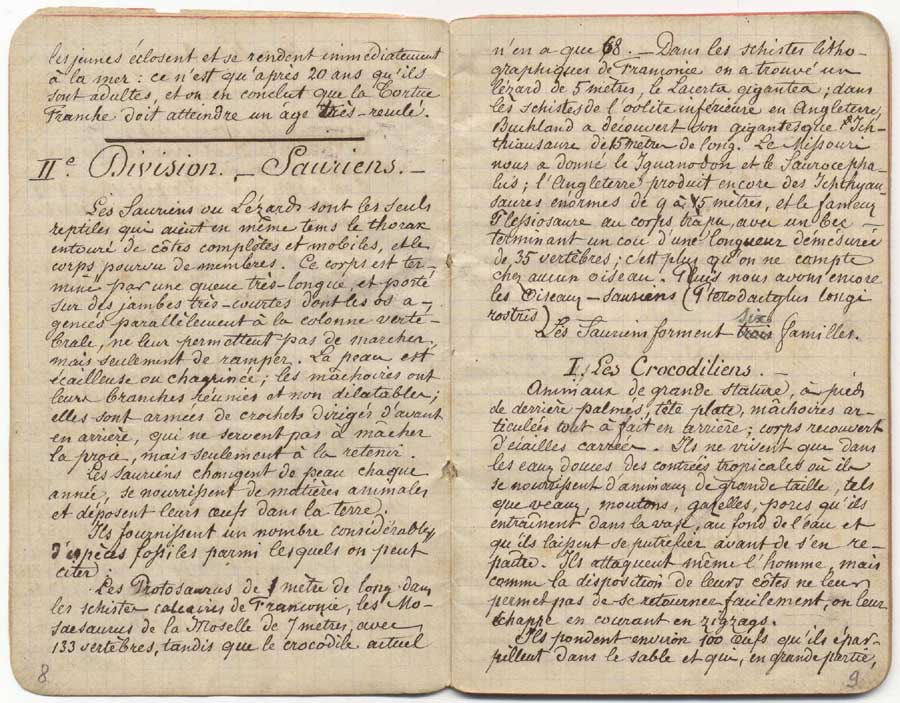 les jeunes éclosent et se rendent immédiatement
à la mer : ce n'est qu'après 20 ans qu'ils
sont adultes, et on en conclut que la Tortue
Franche doit atteindre un âge très-reculé.
IIe. Division. _ Sauriens. _
Les Sauriens ou Lézards sont les seuls
reptiles qui aient en même tems le thorax
entouré de côtes complètes et mobiles, et le
corps pourvu de membres. Ce corps est ter-
miné par une queue très-longue, et porté
sur des jambes très-courtes dont les os a-
gencés parallèlement à la colonne verté-
brale, ne leur permettent pas de marcher,
mais seulement de ramper. La peau est
écailleuse ou chagrinée ; les mâchoires ont
leurs branches réunies et non dilatables ;
elles sont armées de crochets dirigés d'avant
en arrière, qui ne servent pas à mâcher
la proie, mais seulement à la retenir.
Les sauriens changent de peau chaque
année, se nourrissent de matières animales
et déposent leurs œufs dans la terre.
Ils fournissent un nombre considérable
d'espèces fossiles parmi lesquels on peut
citer :
Les Protosaurus de 1 mètre de long dans
les schistes calcaires de Franconie, les Mo-
saesaurus de la Moselle de 7 mètres, avec
133 vertèbres, tandis que le crocodile actuel
8
n'en a que 68. _ Dans les schistes litho-
graphiques de Franconie on a trouvé un
lézard de 5 mètres, le Lacerta gigantea ; dans
les schistes de l'oolite inférieure en Angleterre,
Buckland a découvert son gigantesque Ich-
thiausaure de 15 mètres de long. Le Missouri
nous a donné le Iguanodon et le Saurocepha-
lus ; l'Angleterre produit encore des Ichthyau-
saures énormes de 9 à 15 mètres, et le fameux
Plessiosaure au corps trapu, avec un bec
terminant un cou d'une longueur démesurée
de 35 vertèbres ; c'est plus qu'on ne compte
chez aucun oiseau. Puis nous avons encore
les Oiseaux-sauriens (Pterodactylus longi
rostris)
six
Les Sauriens forment trois familles.
I. Les Crocodiliens. _
Animaux de grande stature, à pieds
de derrière palmés, tête plate, mâchoires ar-
ticulées tout à fait en arrière ; corps recouvert
d'écailles carrées. Ils ne vivent que dans
les eaux douces des contrées tropicales où ils
se nourrissent d'animaux de grande taille, tels
que veaux, moutons, gazelles, porcs qu'ils
entraînent dans la vase, au fond de l'eau et
qu'ils laissent se putréfier avant de s'en re-
paître. Ils attaquent même l'homme, mais
comme la disposition de leurs côtes ne leur
permet pas de se retourner facilement, on leur
échappe en courant en zigzags.
Ils pondent environ 100 œufs qu'ils épar-
pillent dans le sable et qui, en grande partie,
9